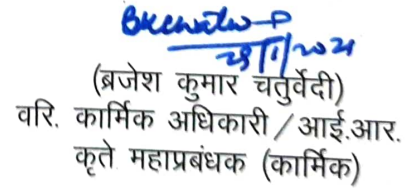 29/1/2021
(ब्रजेश कुमार चतुर्वेदी)
वरि. कार्मिक अधिकारी / आई.आर.
कृते महाप्रबंधक (कार्मिक)